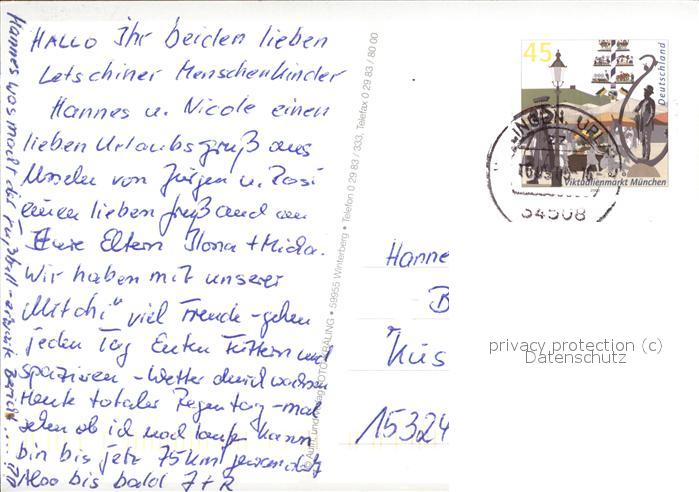 HALLO Ihr beiden lieben
Letschiner Menschenkinder
Hannes u. Nicole einen
lieben Urlaubsgruß aus
Usseln von Jürgen u. Rosi
einen lieben Gruß auch an
Eure Eltern Ilona + Micha.
Wir haben mit unserer
„Mitchi" viel Freude - gehen
jeden Tag Enten füttern und
spazieren - Wetter durchwachsen
Heute totaler Regentag - mal
sehen ob ich noch laufen kann
bin bis jetz 75 km gewandert
Also bis bald J + R
Hannes was macht der Fußball - erwarte Bericht....
59955 Winterberg • Telefon 0 29 83 / 333, Telefax 0 29 83 / 80 00
45
Deutschland
Viktualienmarkt München
34508
Hanne
B
Küs
15324
privacy protection (c)
Datenschutz